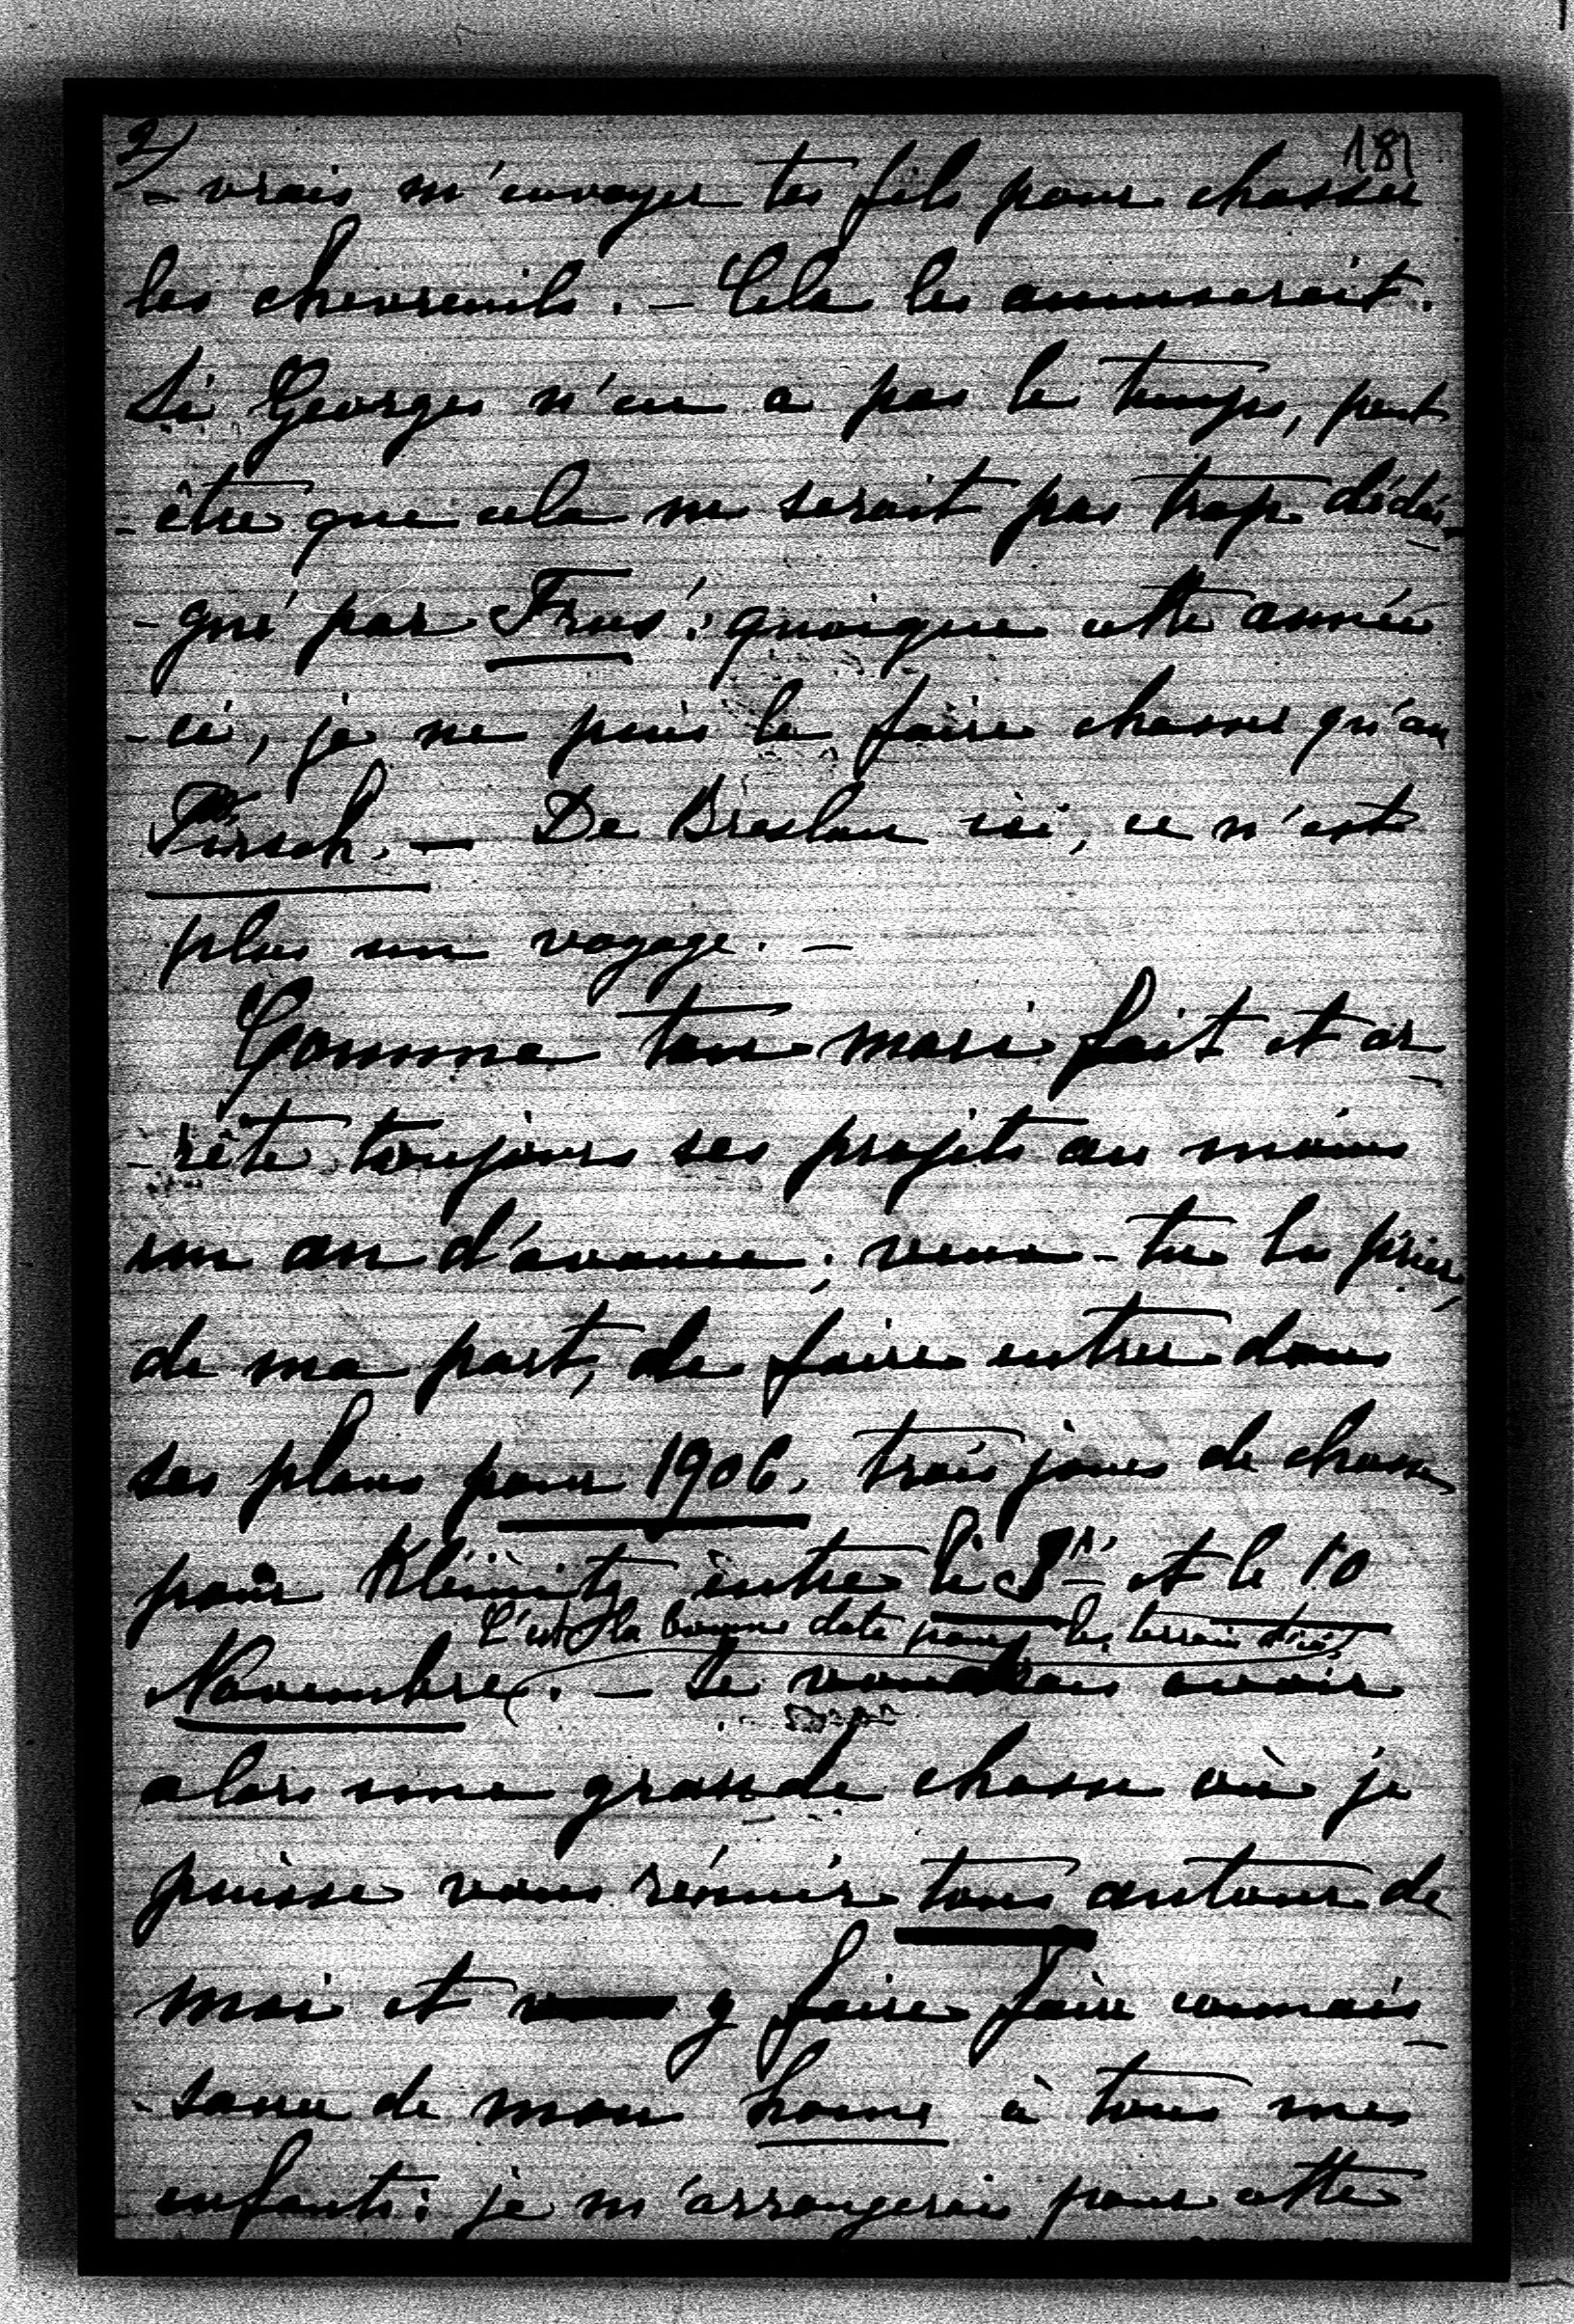 2)
181
-vrais m'envoyer tes fils pour chasser
les chevreuils. – Cela les amuserait.
Si Georges n'en a pas le temps, peut
-être que cela ne serait pas trop dédai-
-gné par : quoique cette année
-ci, je ne puis le faire chasser qu'au
Pirsch. – De Breslau ici, ce n'est
plus un voyage. –
Comme ton mari fait et ar-
-rête toujours ses projets au moins
un an d'avance; veux-tu le prier,
de ma part, de faire entrer dans
ses plans pour 1906, trois jours de chasse
pour Kleinitz entre le et le 10
C'est la bonne date pour les terrain d'ici
Novembre. – Je voudrais avoir
alors une grande chasse où je
puisse vous réunir tous autour de
moi et y faire faire connais-
-sance de mon home à tous mes
enfants: je m'arrangerai pour cette